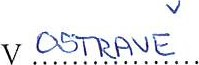 V OSTRAVĚ